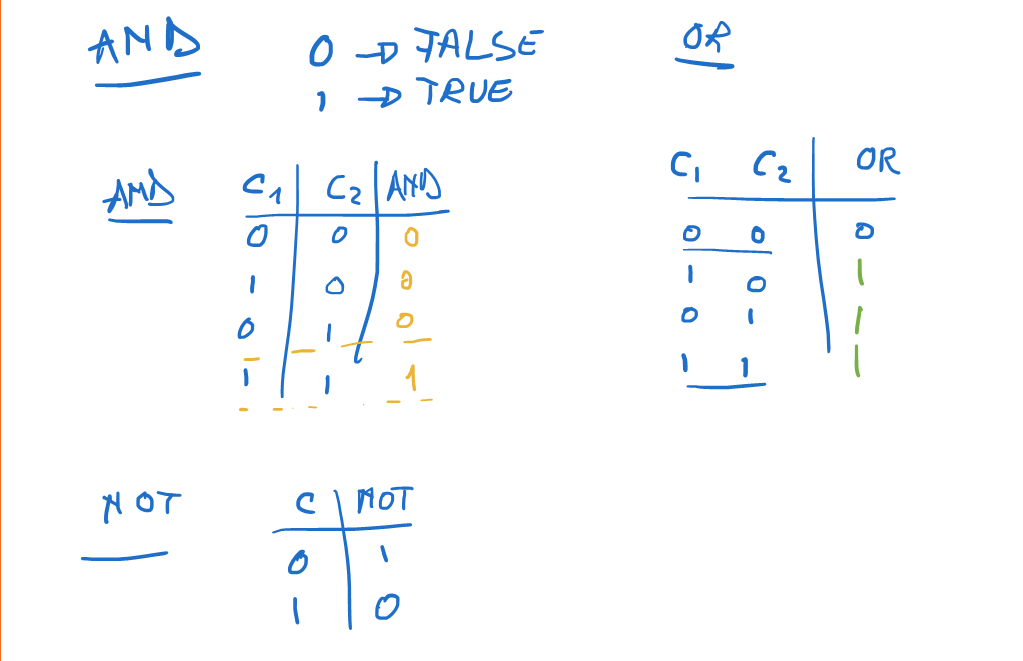 AND
0 → FALSE
1 → TRUE
OR
AND
C1 C2 AND
0 0 0
1 0 0
0 1 0
1 1 1
C1 C2 OR
0 0 0
1 0 1
0 1 1
1 1 1
NOT
C NOT
0 1
1 0